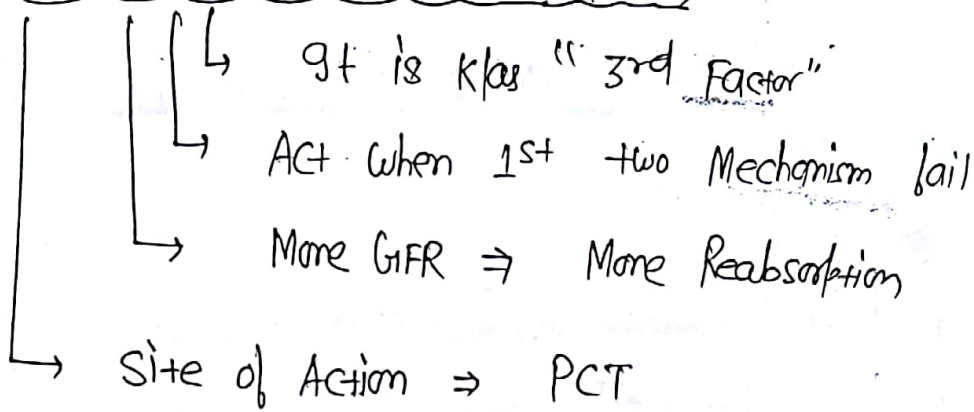 ↳ It is K/as "3rd Factor"
↳ Act when 1st two Mechanism fail
→ More GFR ⇒ More Reabsorption
→ Site of Action ⇒ PCT